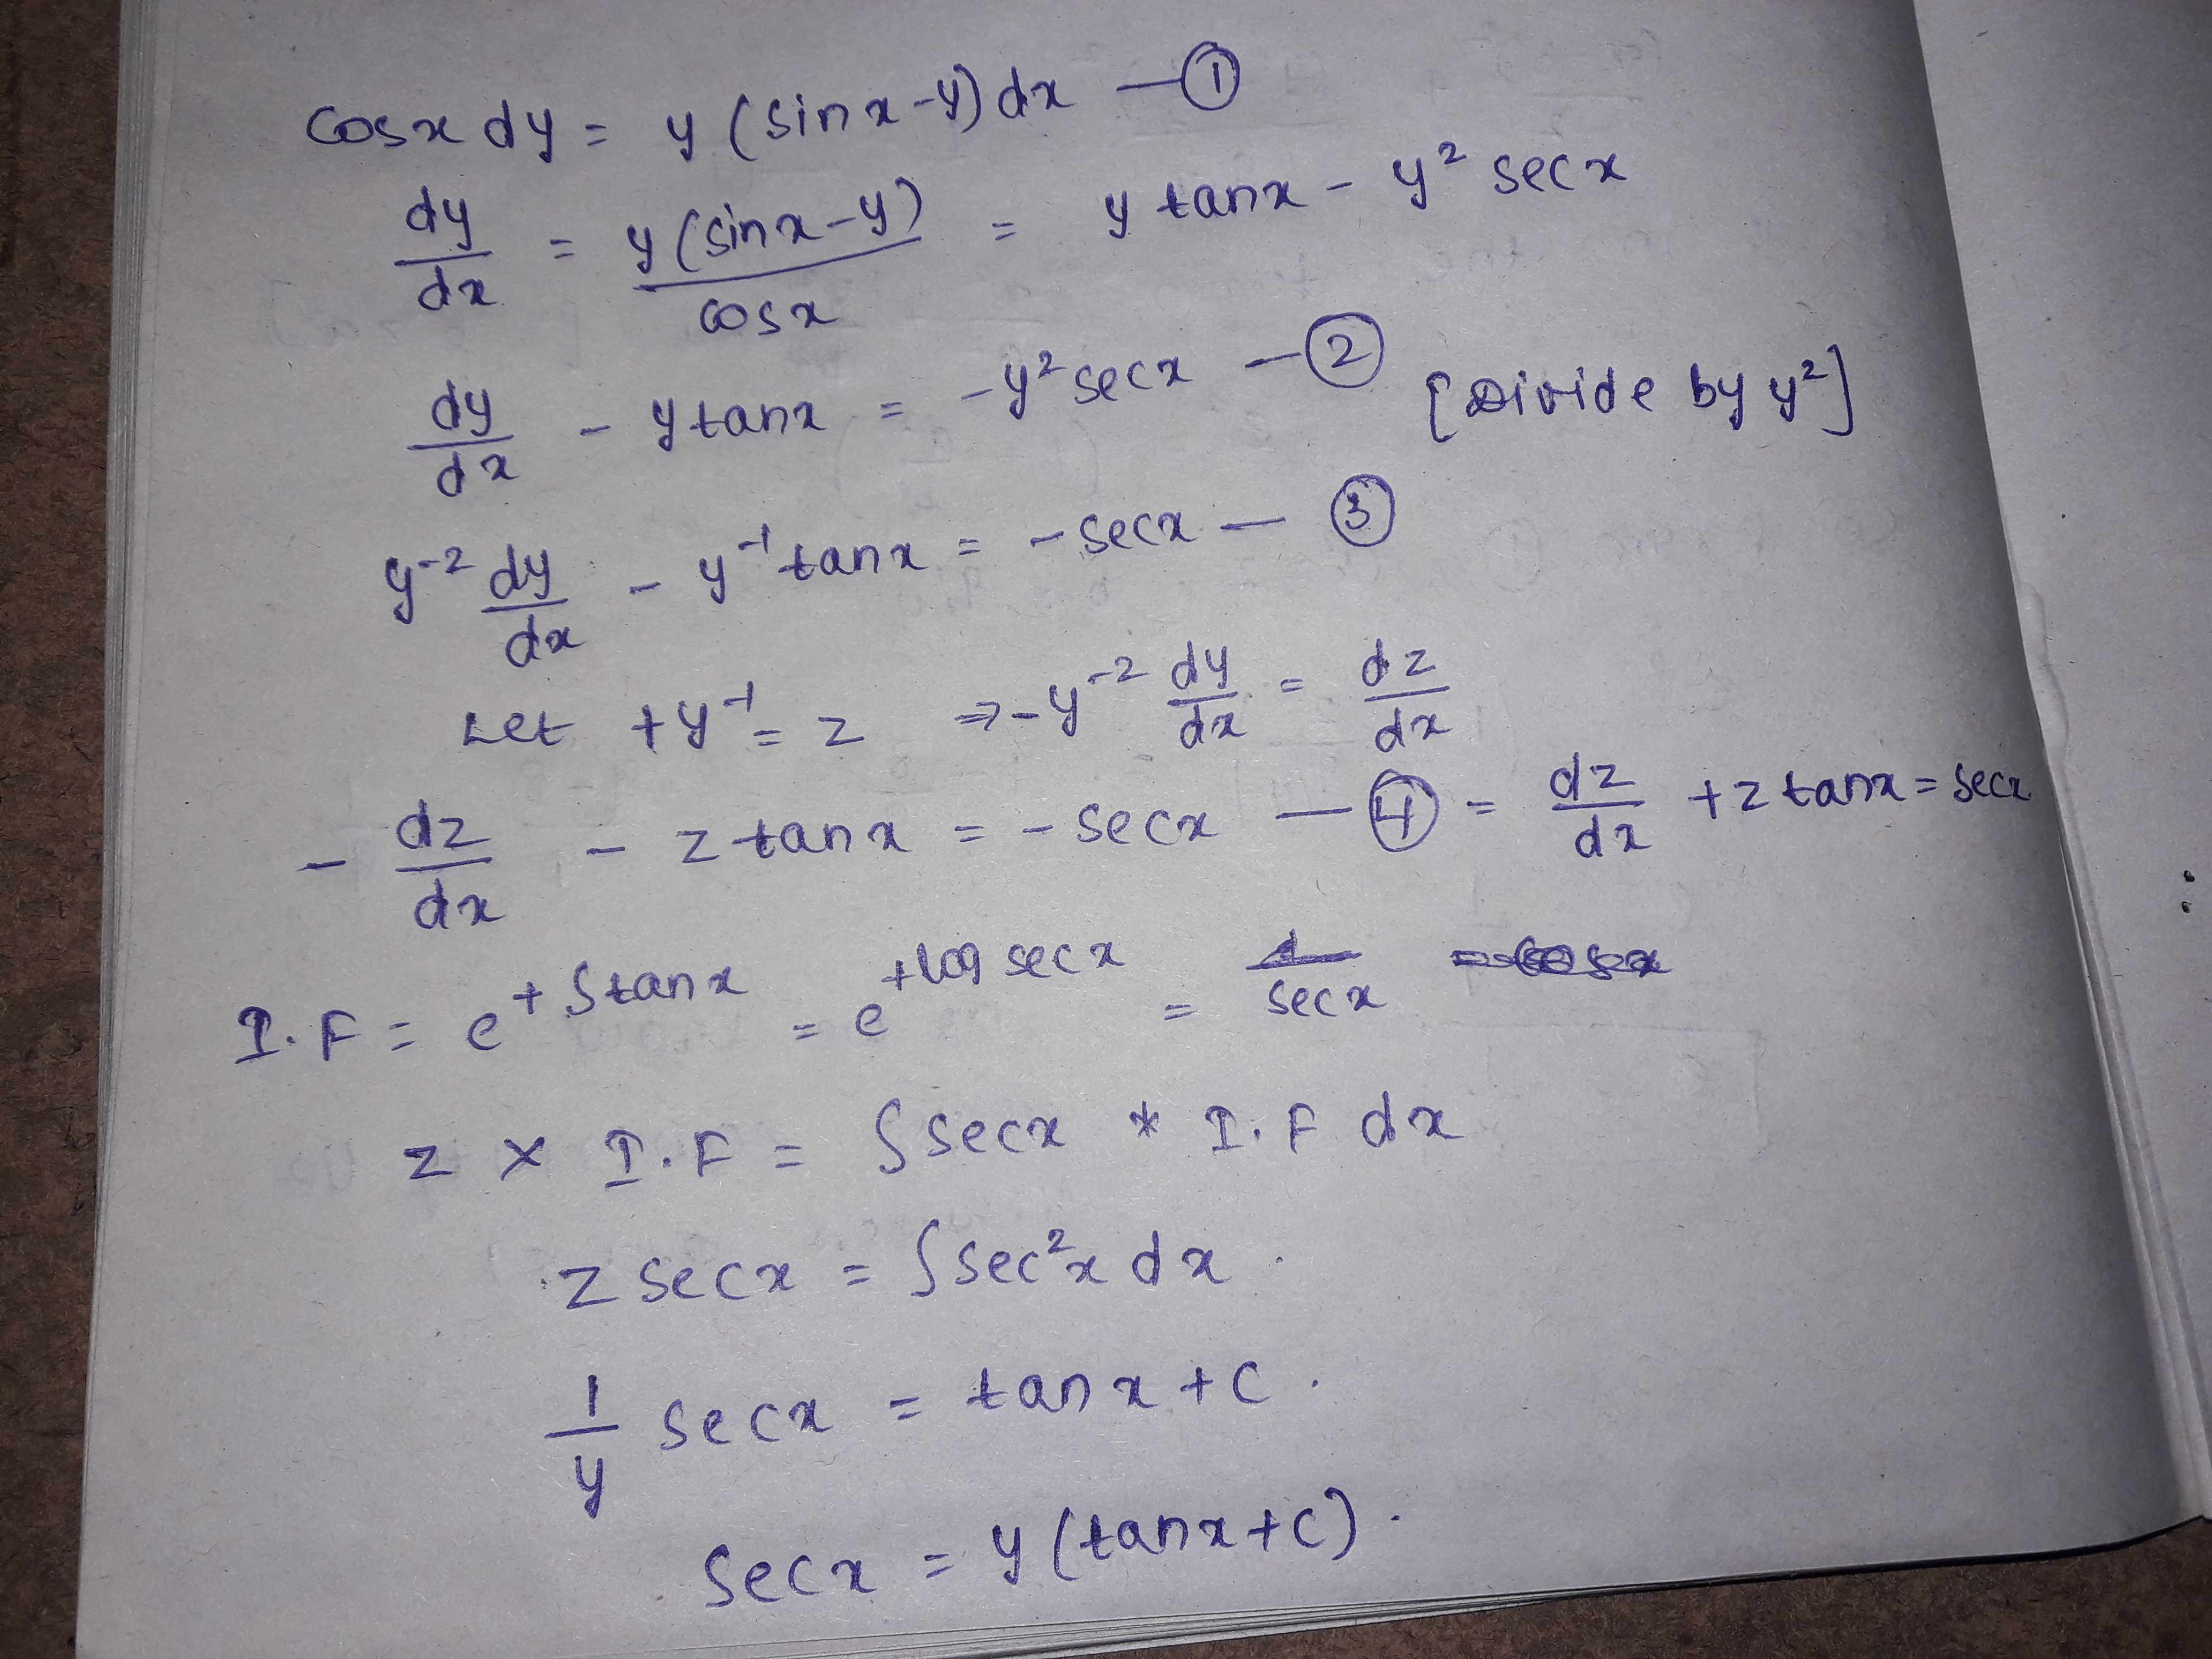 cosx dy = y (sinx-y) dx — ①
dy/dx = y(sinx-y)/cosx = y tanx - y² secx
dy/dx - ytanx = -y² secx — ② [Divide by y²]
y⁻² dy/dx - y⁻¹ tanx = - secx — ③
Let +y⁻¹ = z ⇒ -y⁻² dy/dx = dz/dx
- dz/dx - z tanx = - secx — ④ = dz/dx + z tanx = secx
I.F = e^{+∫tanx} = e^{+log secx} = secx
z × I.F = ∫secx * I.F dx
z secx = ∫sec²x dx .
1/y secx = tanx + c .
secx = y (tanx+c) .